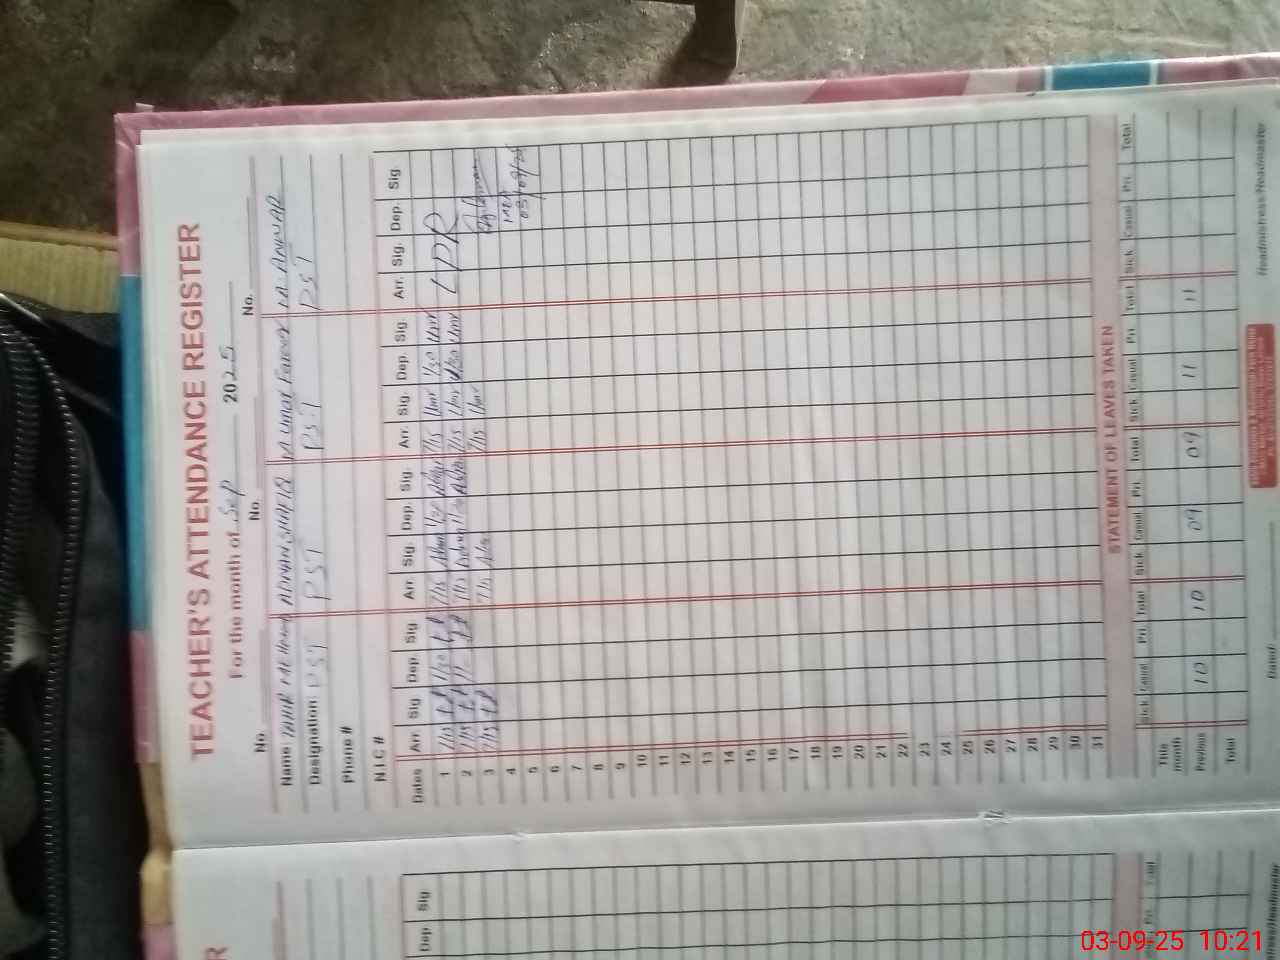 TEACHER'S ATTENDANCE REGISTER
For the month of Sep 2025
No. No. No.
Name ADNAN SHAFIQ M Umar Farooq M. ANWAR
Designation PST PST PST PST
Phone #
N.I.C #
Dates Arr Sig Dep. Sig Arr. Sig. Dep. Sig. Arr. Sig. Dep. Sig. Arr. Sig. Dep. Sig.
1 7/15 1/30 7/15 1/30 7/15 Umr 1/30 Umr LPR
2 7/15 7/15 7/15 Umr Umr
3 7/15 7/15 7/15 Umr
4 MEA
5 03/09/25
6
7
8
9
10
11
12
13
14
15
16
17
18
19
20
21
22
23
24
25
26
27
28
29
30
31
STATEMENT OF LEAVES TAKEN
Title Sick Casual Pri. Total Sick Casual Pri. Total Sick Casual Pri. Total Sick Casual Pri. Total
month
Previous 10 10 09 09 11 11
Total
Dated: Headmistress/Headmaster
R
Dep. Sig
03-09-25 10:21